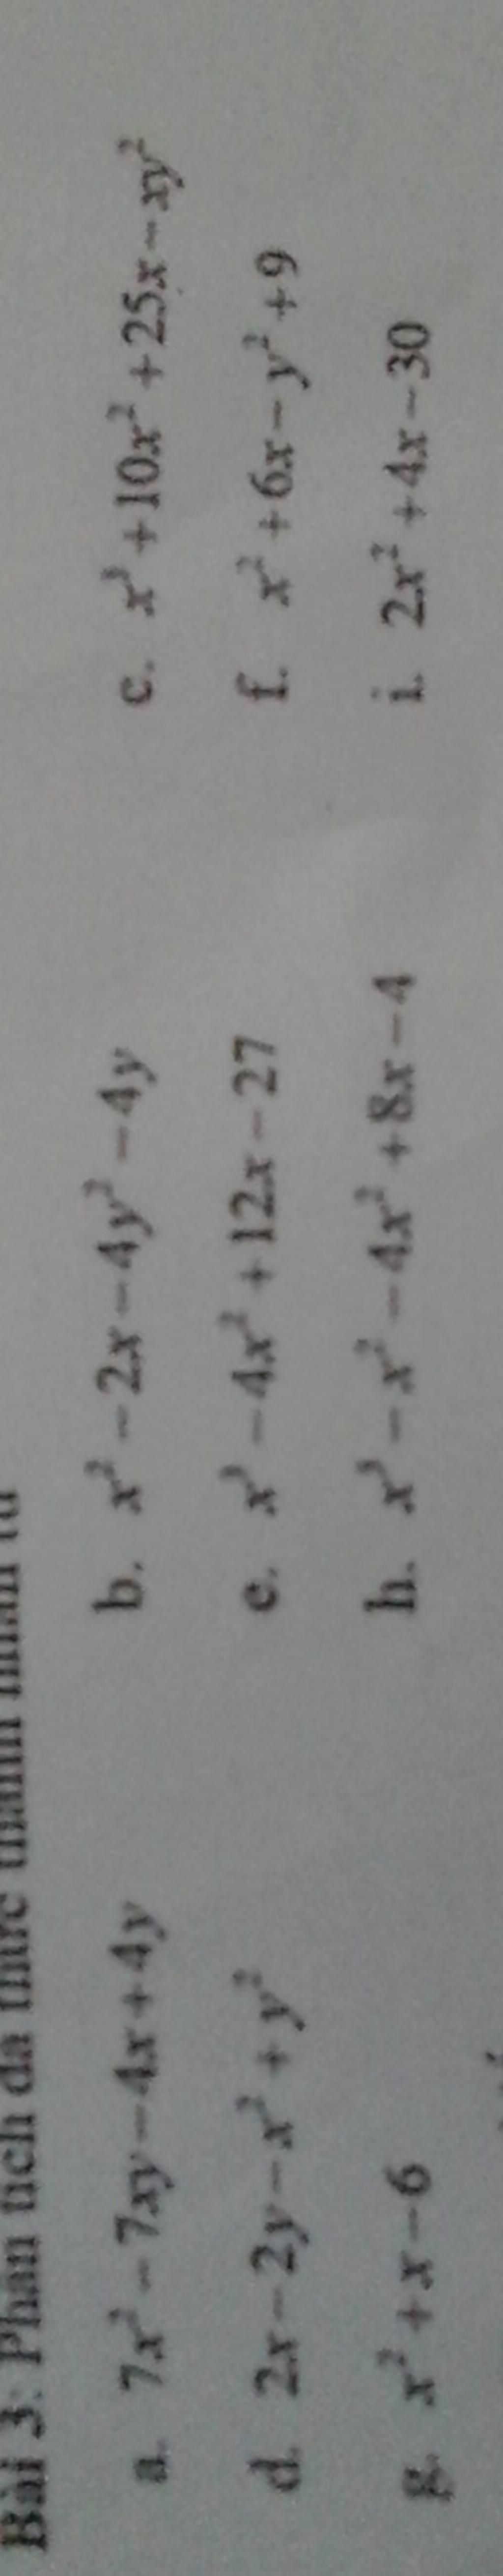 Bài 3: Phân tích đa thức thành nhân tử
a. 7x² − 7xy − 4x + 4y b. x² − 2x − 4y² − 4y c. x³ + 10x² + 25x − xy²
d. 2x − 2y − x² + y² e. x³ − 4x² + 12x − 27 f. x² + 6x − y² + 9
g. x² + x − 6 h. x³ − x² − 4x² + 8x − 4 i. 2x² + 4x − 30